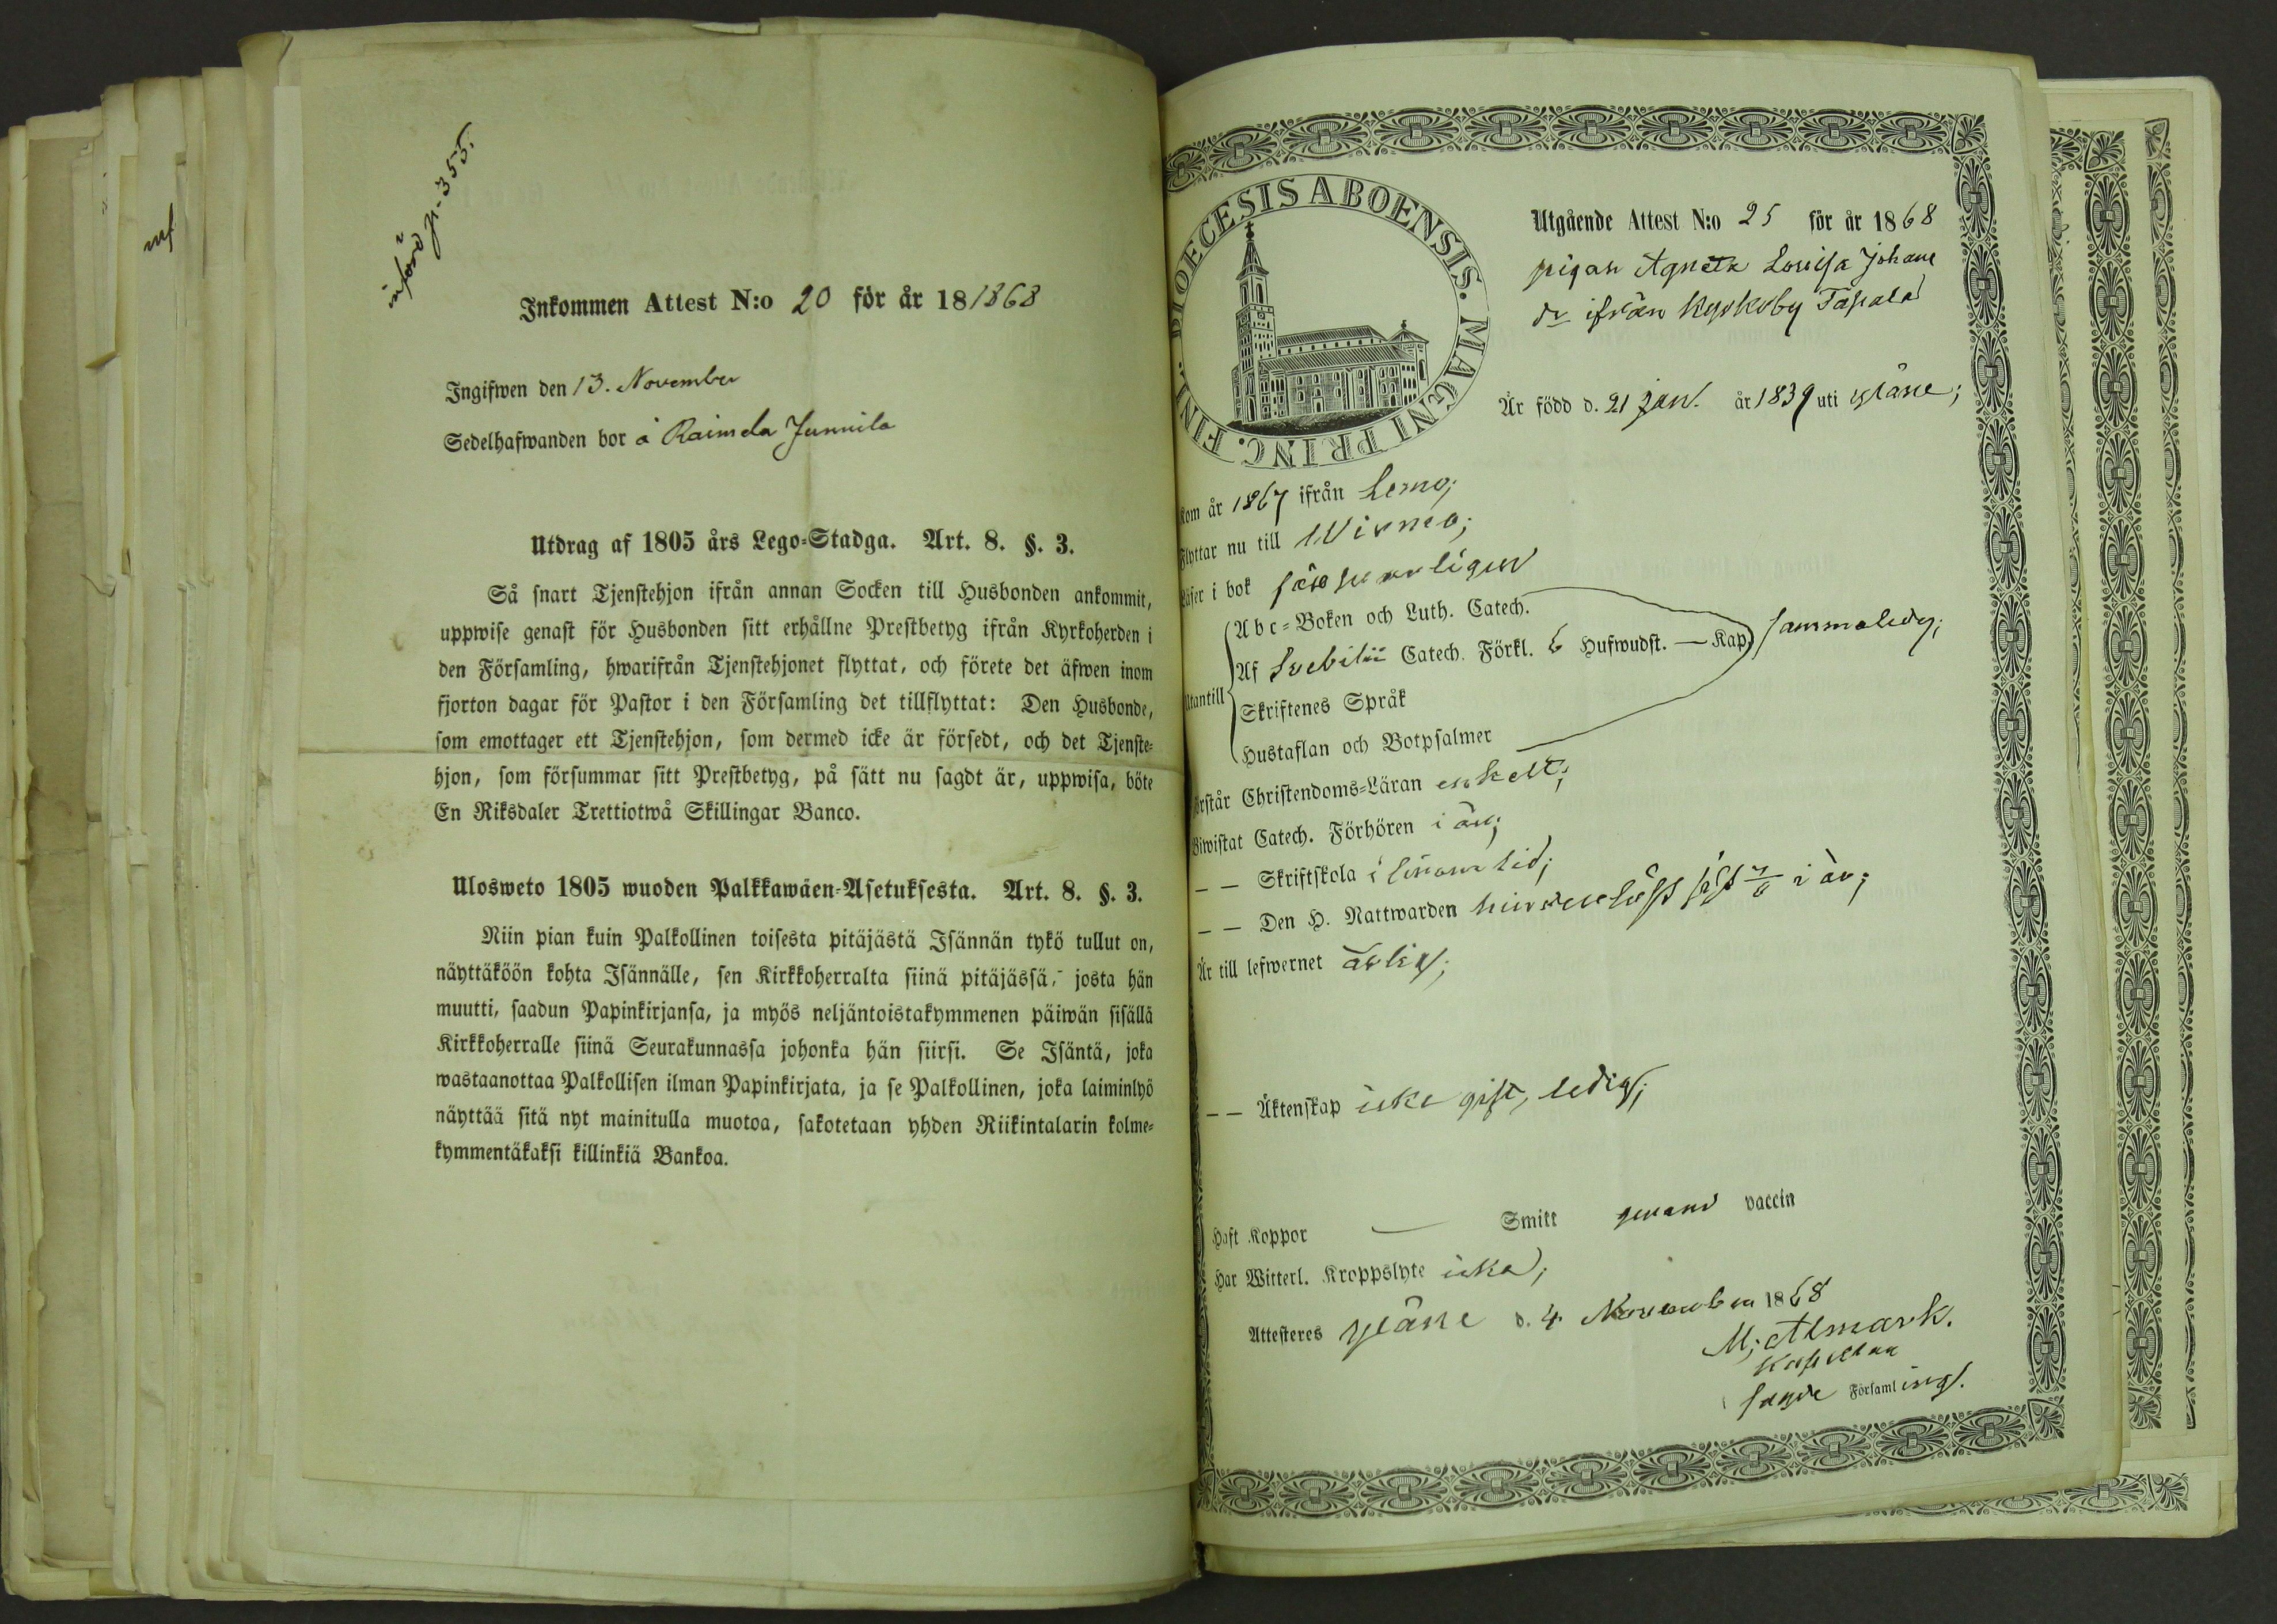 införd p. 355.
Inkommen Attest N:o 20 för år 18 1868
Ingifwen den 13. November
Sedelhafwanden bor å Raimela Junnila
Utdrag af 1805 års Lego-Stadga. Art. 8. §. 3.
Så snart Tjenstehjon ifrån annan Socken till Husbonden ankommit,
uppwise genast för Husbonden sitt erhållne Prestbetyg ifrån Kyrkoherden i
den Församling, hwarifrån Tjenstehjonet flyttat, och förete det äfwen inom
fjorton dagar för Pastor i den Församling det tillflyttat: Den Husbonde,
som emottager ett Tjenstehjon, som dermed icke är försedt, och det Tjenste-
hjon, som försummar sitt Prestbetyg, på sätt nu sagdt är, uppwisa, böte
En Riksdaler Trettiotwå Skillingar Banco.
Ulosweto 1805 wuoden Palkkawäen-Asetuksesta. Art. 8. §. 3.
Niin pian kuin Palkollinen toisesta pitäjästä Isännän tykö tullut on,
näyttäköön kohta Isännälle, sen Kirkkoherralta siinä pitäjässä, josta hän
muutti, saadun Papinkirjansa, ja myös neljäntoistakymmenen päiwän sisällä
Kirkkoherralle siinä Seurakunnassa johonka hän siirsi. Se Isäntä, joka
wastaanottaa Palkollisen ilman Papinkirjata, ja se Palkollinen, joka laiminlyö
näyttää sitä nyt mainitulla muotoa, sakotetaan yhden Riikintalarin kolme-
kymmentäkaksi killinkiä Bankoa.
mf
DIOECESIS ABOENSIS. MAGNI PRINC. FINL.
Utgående Attest N:o 25 för år 1868
pigan Agneta Lovisa Johans
dr ifrån Kyrkoby Tapala
Är född d. 21 Jan. år 1839 uti Yläne;
Kom år 1867 ifrån Lemo;
Flyttar nu till Wirmo;
Läser i bok försvarligen
Utantill
Abc-Boken och Luth. Catech.
Af Svebilii Catech. Förkl. 6 Hufwudst. — Kap. sammaledes;
Skriftenes Språk
Hustaflan och Botpsalmer
Förstår Christendoms-Läran enkelt;
Biwistat Catech. Förhören i år;
— — Skriftskola i sinom tid;
— — Den H. Nattwarden sist 7/6 i år;
Är till lefwernet ärlig;
— — Äktenskap icke gift, ledig;
Haft Koppor — Smitt genom vaccin
Har Witterl. Kroppslyte icke;
Attesteres Yläne d. 4 November 1868
M; Almark.
Kapellan
Församling.